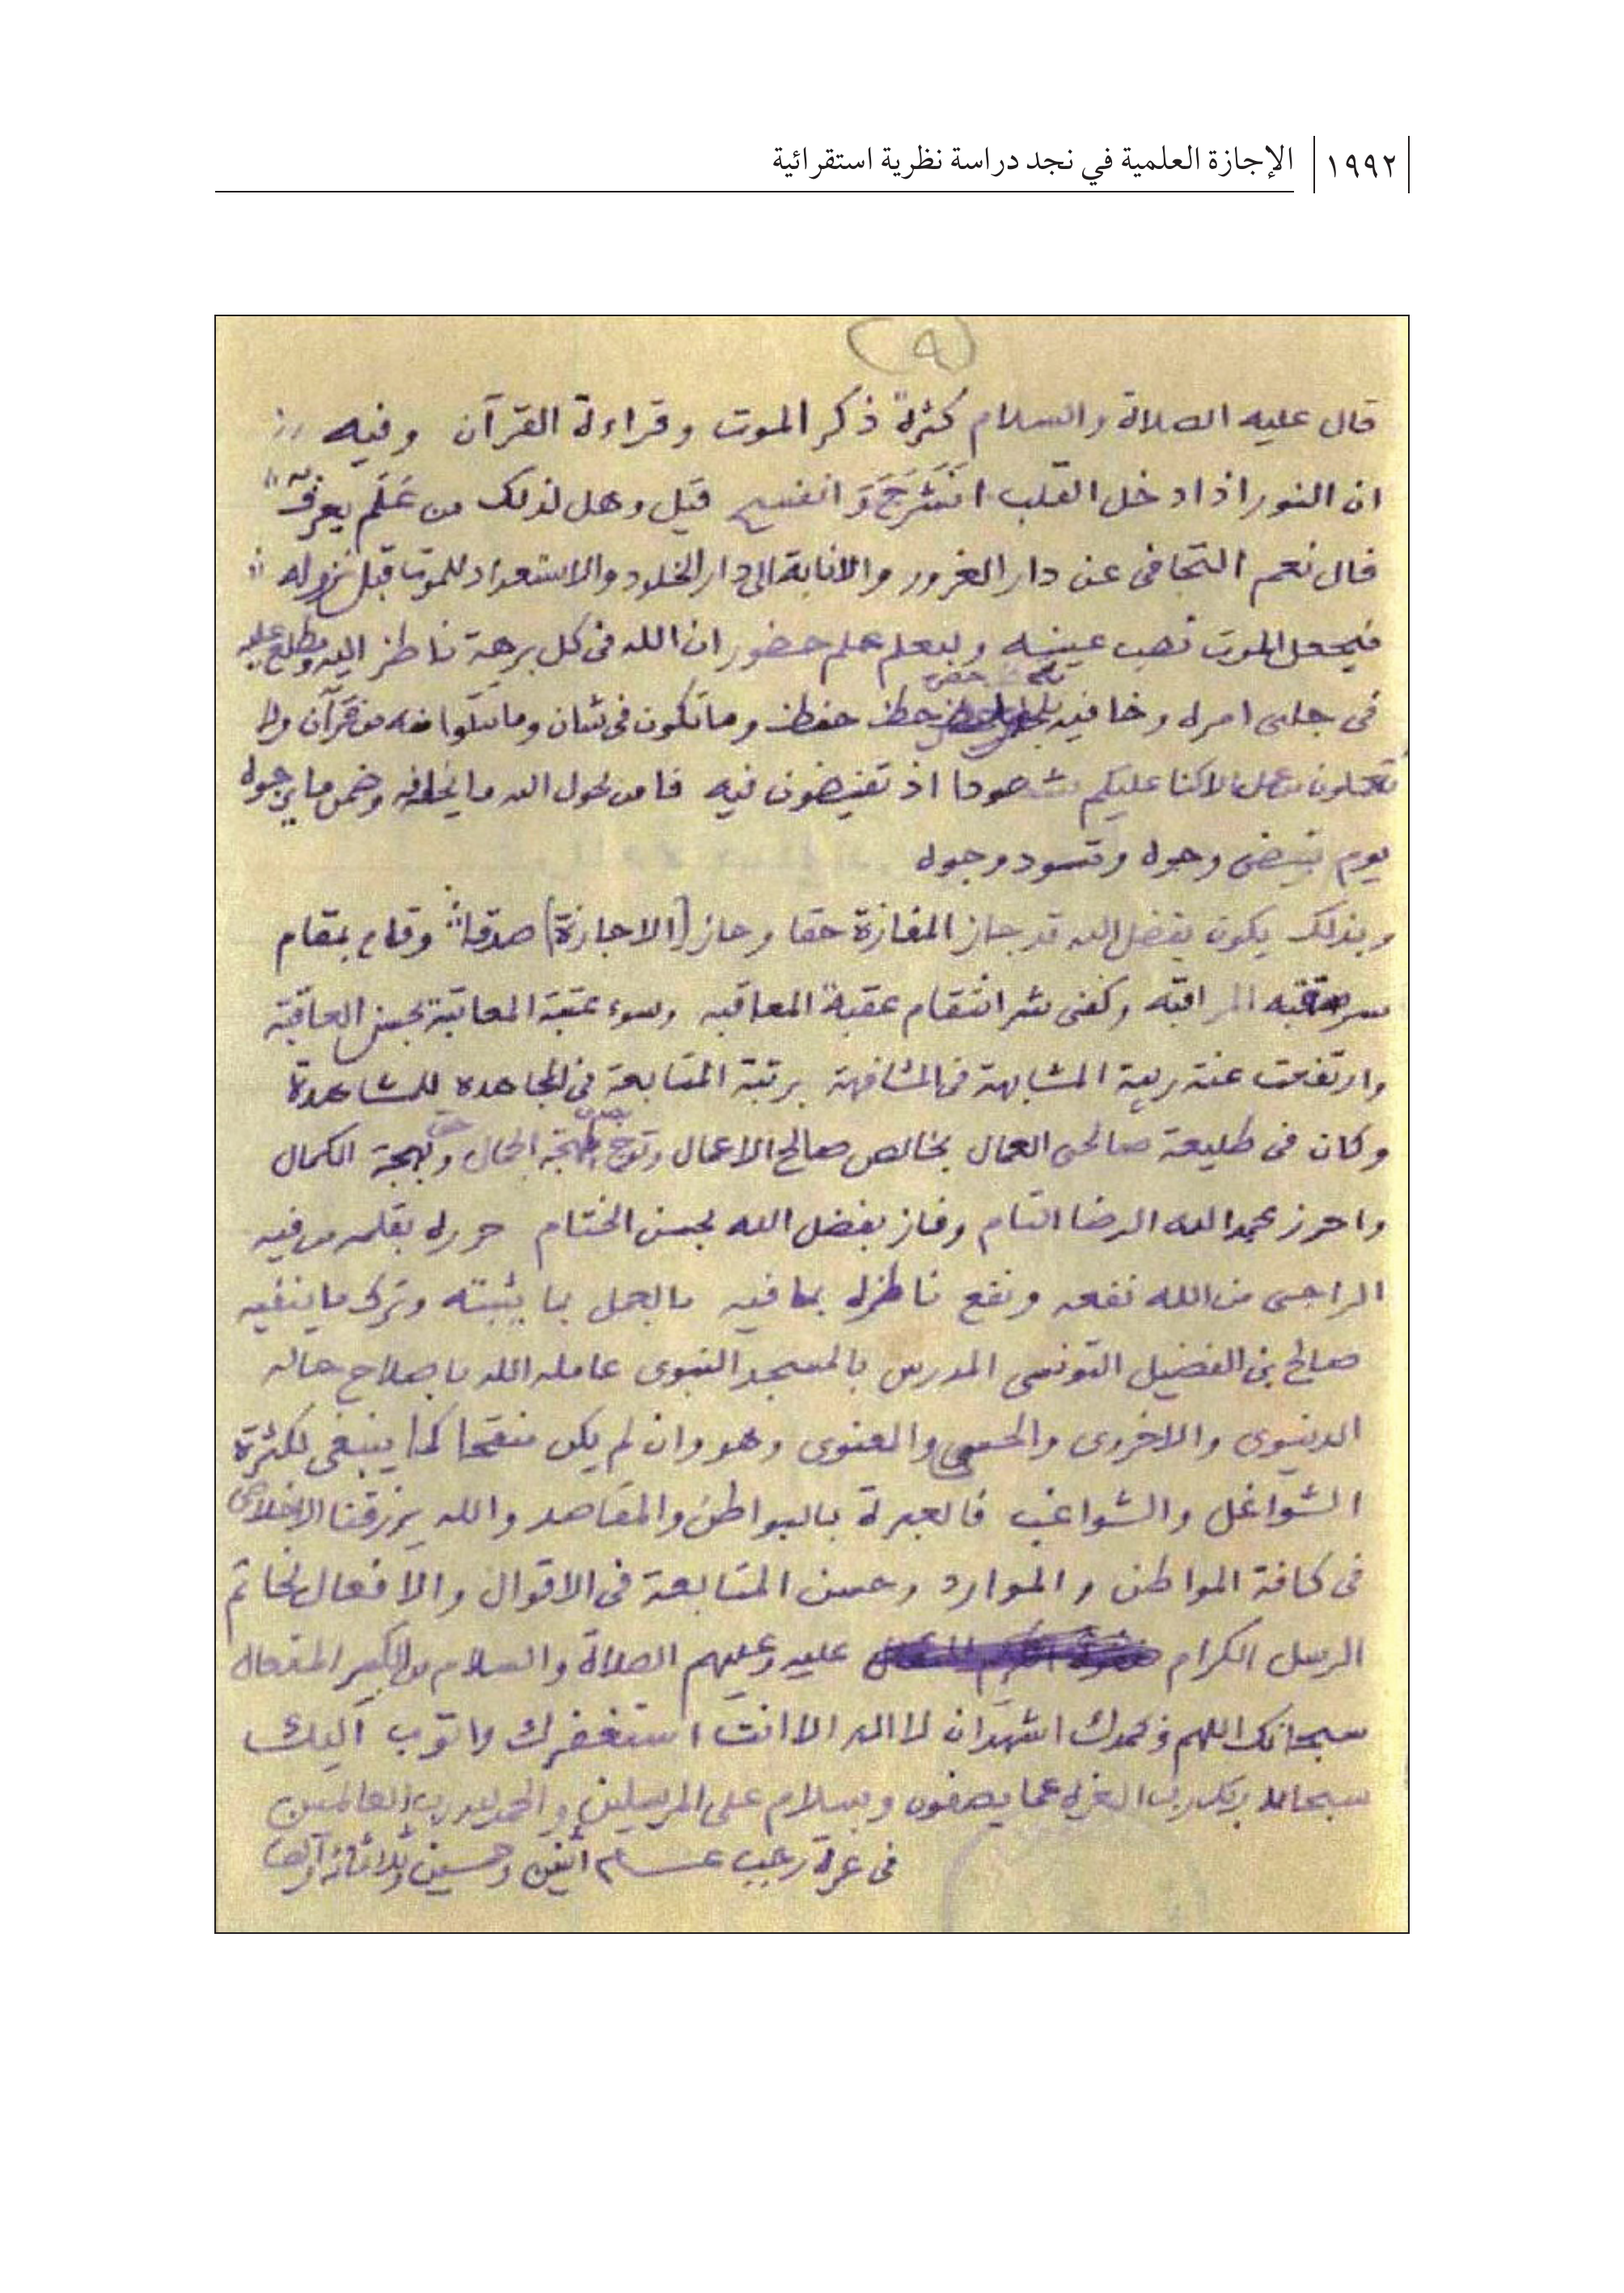 ١٩٩٢ الإجازة العلمية في نجد دراسة نظرية استقرائية
(٩)
قال عليه الصلاة والسلام كثرة ذكر الموت وقراءة القرآن وفيه
ان النور اذا دخل القلب انشرح وانفسح قيل وهل لذلك من علم يعرف
قال نعم التجافى عن دار الغرور والانابة الى دار الخلود والاستعداد للموت قبل نزوله
فيجعل الموت نصب عينيه وليعلم علم حضور ان الله فى كل برهة ناظر اليه ومطلع عليه
فى جلى امره وخافيه حفظ وما تكون فى شان وما تتلوا منه من قرآن ولا
تعملون من عمل الا كنا عليكم شهودا اذ تفيضون فيه فامن بحول الله ما يخافه وضمن ما يرجوه
يوم تبيض وجوه وتسود وجوه
وبذلك يكون بفضل الله قد جاز المفازة حقا وحاز (الاجازة) صدقا وقام بمقام
المراقبه وكفى شر انتقام عقبة المعاقبه وسوء عقبة المعاتبة بحسن العاقبة
وارتفعت عنه ريبة المشابهة فى المشافهة برتبة المتابعة فى المجاهده للمشاهدة
وكان فى طليعة صالحى العمال بخالص صالح الاعمال الحال وبهجة الكمال
واحرز بحمد الله الرضا التام وفاز بفضل الله بحسن الختام حرره بقلمه من فيه
الراجى من الله نفعه ونفع ناظره بما فيه بالعمل بما يثبته وترك ما ينفيه
صالح بن الفضيل التونسى المدرس بالمسجد النبوى عامله الله باصلاح حاله
الدنيوى والاخروى والحسى والمعنوى وهو وان لم يكن منقحا كما ينبغى لكثرة
الشواغل والشواغب فالعبرة بالبواطن والمقاصد والله يرزقنا الاخلاص
فى كافة المواطن والموارد وحسن المتابعة فى الاقوال والافعال لخاتم
الرسل الكرام عليه وعليهم الصلاة والسلام من الكبير المتعال
سبحانك اللهم وبحمدك اشهد ان لا اله الا انت استغفرك واتوب اليك
سبحان ربك رب العزه عما يصفون وسلام على المرسلين والحمد لله رب العالمين
فى غرة رجب عام اثنين وخمسين وثلاثمائة وألف